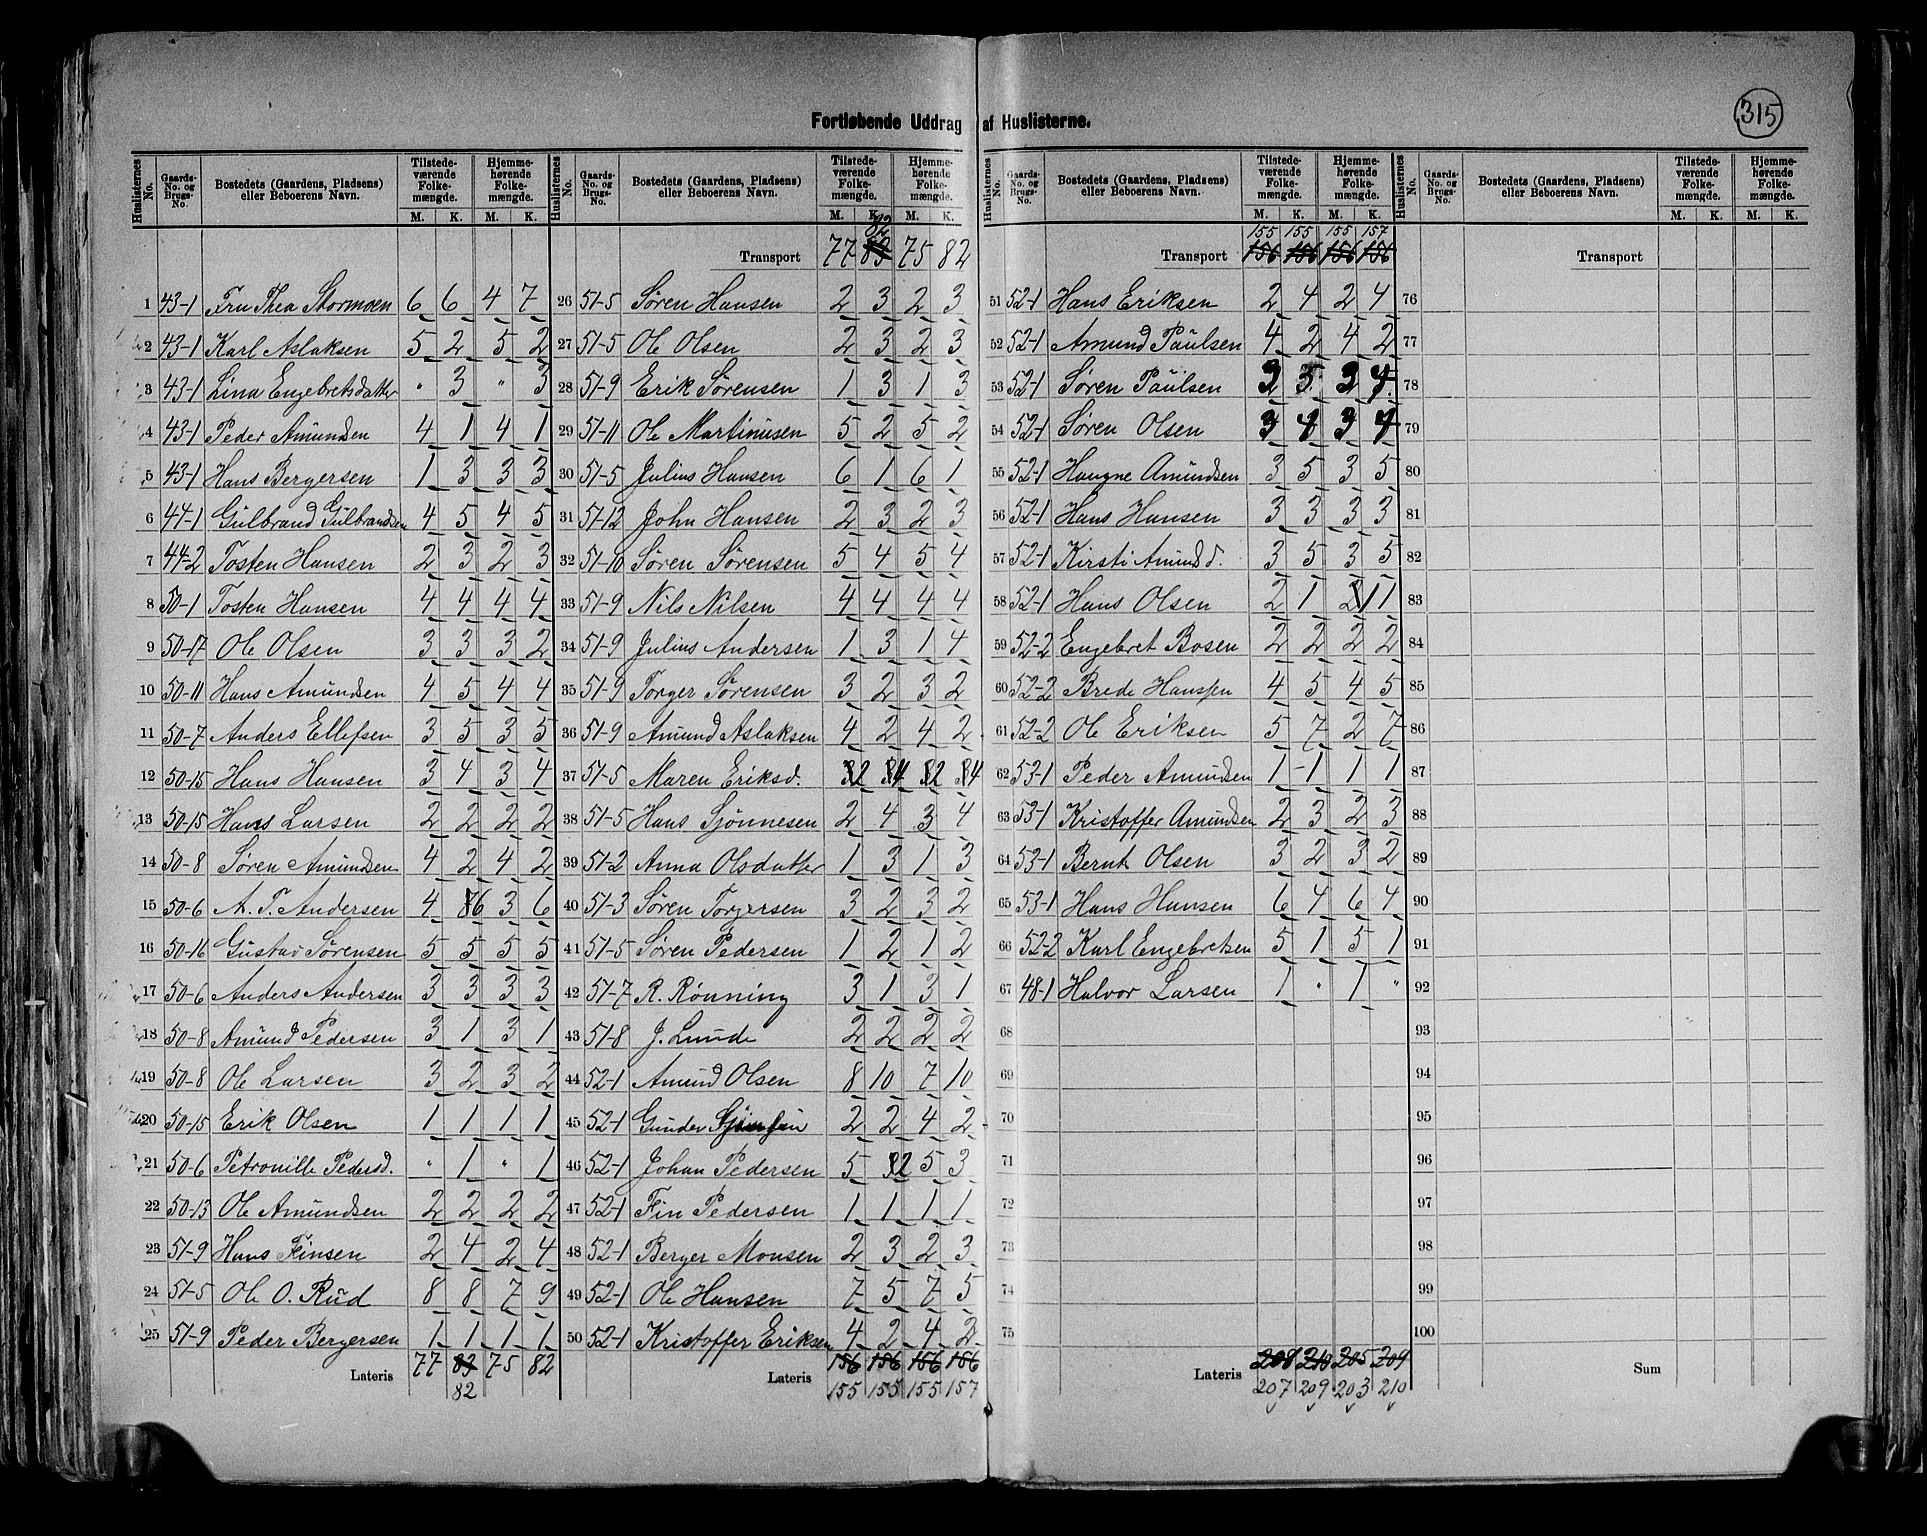 315
Fortløbende Uddrag af Huslisterne.
Huslisternes No. Gaards-No. og Brugs-No. Bostedets (Gaardens, Pladsens) eller Beboerens Navn. Tilstedeværende Folkemængde. M. K. Hjemmehørende Folkemængde. M. K.
1 43-1 Fru Thea Stormoen 6 6 4 7
2 43-1 Karl Aslaksen 5 2 5 2
3 43-1 Lina Engebretsdatter " 3 " 3
4 43-1 Peder Amundsen 4 1 4 1
5 43-1 Hans Bergersen 1 3 3 3
6 44-1 Gulbrand Gulbrandsen 4 5 4 5
7 44-2 Tosten Hansen 2 3 2 3
8 50-1 Tosten Hansen 4 4 4 4
9 50-17 Ole Olsen 3 3 3 2
10 50-11 Hans Amundsen 4 5 4 4
11 50-7 Anders Ellefsen 3 5 3 5
12 50-15 Hans Hansen 3 4 3 4
13 50-15 Hans Larsen 2 2 2 2
14 50-8 Søren Amundsen 4 2 4 2
15 50-6 A. T. Andersen 4 6 3 6
16 50-16 Gustav Sørensen 5 5 5 5
17 50-6 Anders Andersen 3 3 3 3
18 50-8 Amund Pedersen 3 1 3 1
19 50-8 Ole Larsen 3 2 3 2
20 50-15 Erik Olsen 1 1 1 1
21 50-6 Petronille Pedersd. " 1 " 1
22 50-13 Ole Amundsen 2 2 2 2
23 51-9 Hans Finsen 2 4 2 4
24 51-5 Ole O. Rud 8 8 7 9
25 51-9 Peder Bergersen 1 1 1 1
Lateris 77 83 75 82
82
Huslisternes No. Gaards-No. og Brugs-No. Bostedets (Gaardens, Pladsens) eller Beboerens Navn. Tilstedeværende Folkemængde. M. K. Hjemmehørende Folkemængde. M. K.
82
Transport 77 83 75 82
26 51-5 Søren Hansen 2 3 2 3
27 51-5 Ole Olsen 2 3 2 3
28 51-9 Erik Sørensen 1 3 1 3
29 51-11 Ole Martinusen 5 2 5 2
30 51-5 Julius Hansen 6 1 6 1
31 51-12 John Hansen 2 3 2 3
32 51-10 Søren Sørensen 5 4 5 4
33 51-9 Nils Nilsen 4 4 4 4
34 51-9 Julius Andersen 1 3 1 4
35 51-9 Torger Sørensen 3 2 3 2
36 51-9 Amund Aslaksen 4 2 4 2
37 51-5 Maren Eriksd. 2 4 2 4
38 51-5 Hans Sjønnesen 2 4 3 4
39 51-2 Anna Olsdatter 1 3 1 3
40 51-3 Søren Torgersen 3 2 3 2
41 51-5 Søren Pedersen 1 2 1 2
42 51-7 R. Rønning 3 1 3 1
43 51-8 J. Lunde 2 2 2 2
44 52-1 Amund Olsen 8 10 7 10
45 52-1 Gunder 2 2 4 2
46 52-1 Johan Pedersen 5 2 5 3
47 52-1 Fin Pedersen 1 1 1 1
48 52-1 Berger Monsen 2 3 2 3
49 52-1 Ole Hansen 7 5 7 5
50 52-1 Kristoffer Eriksen 4 2 4 2
Lateris 156 156 156 156
155 155 155 157
Huslisternes No. Gaards-No. og Brugs-No. Bostedets (Gaardens, Pladsens) eller Beboerens Navn. Tilstedeværende Folkemængde. M. K. Hjemmehørende Folkemængde. M. K.
155 155 155 157
Transport 156 156 156 156
51 52-1 Hans Eriksen 2 4 2 4
52 52-1 Amund Paulsen 4 2 4 2
53 52-1 Søren Paulsen 5
54 52-1 Søren Olsen 3 4 3 4
55 52-1 Haagne Amundsen 3 5 3 5
56 52-1 Hans Hansen 3 3 3 3
57 52-1 Kirsti Amundsd. 3 5 3 5
58 52-1 Hans Olsen 2 1 1 1
59 52-2 Engebret Bosen 2 2 2 2
60 52-2 Brede Hanssen 4 5 4 5
61 52-2 Ole Eriksen 5 7 2 7
62 53-1 Peder Amundsen 1 1 1 1
63 53-1 Kristoffer Amundsen 2 3 2 3
64 53-1 Bernt Olsen 3 2 3 2
65 53-1 Hans Hansen 6 4 6 4
66 52-2 Karl Engebretsen 5 1 5 1
67 48-1 Halvor Larsen 1 " 1 "
68
69
70
71
72
73
74
75
Lateris 208 210 205 209
207 209 203 210
Huslisternes No. Gaards-No. og Brugs-No. Bostedets (Gaardens, Pladsens) eller Beboerens Navn. Tilstedeværende Folkemængde. M. K. Hjemmehørende Folkemængde. M. K.
Transport
76
77
78
79
80
81
82
83
84
85
86
87
88
89
90
91
92
93
94
95
96
97
98
99
100
Sum